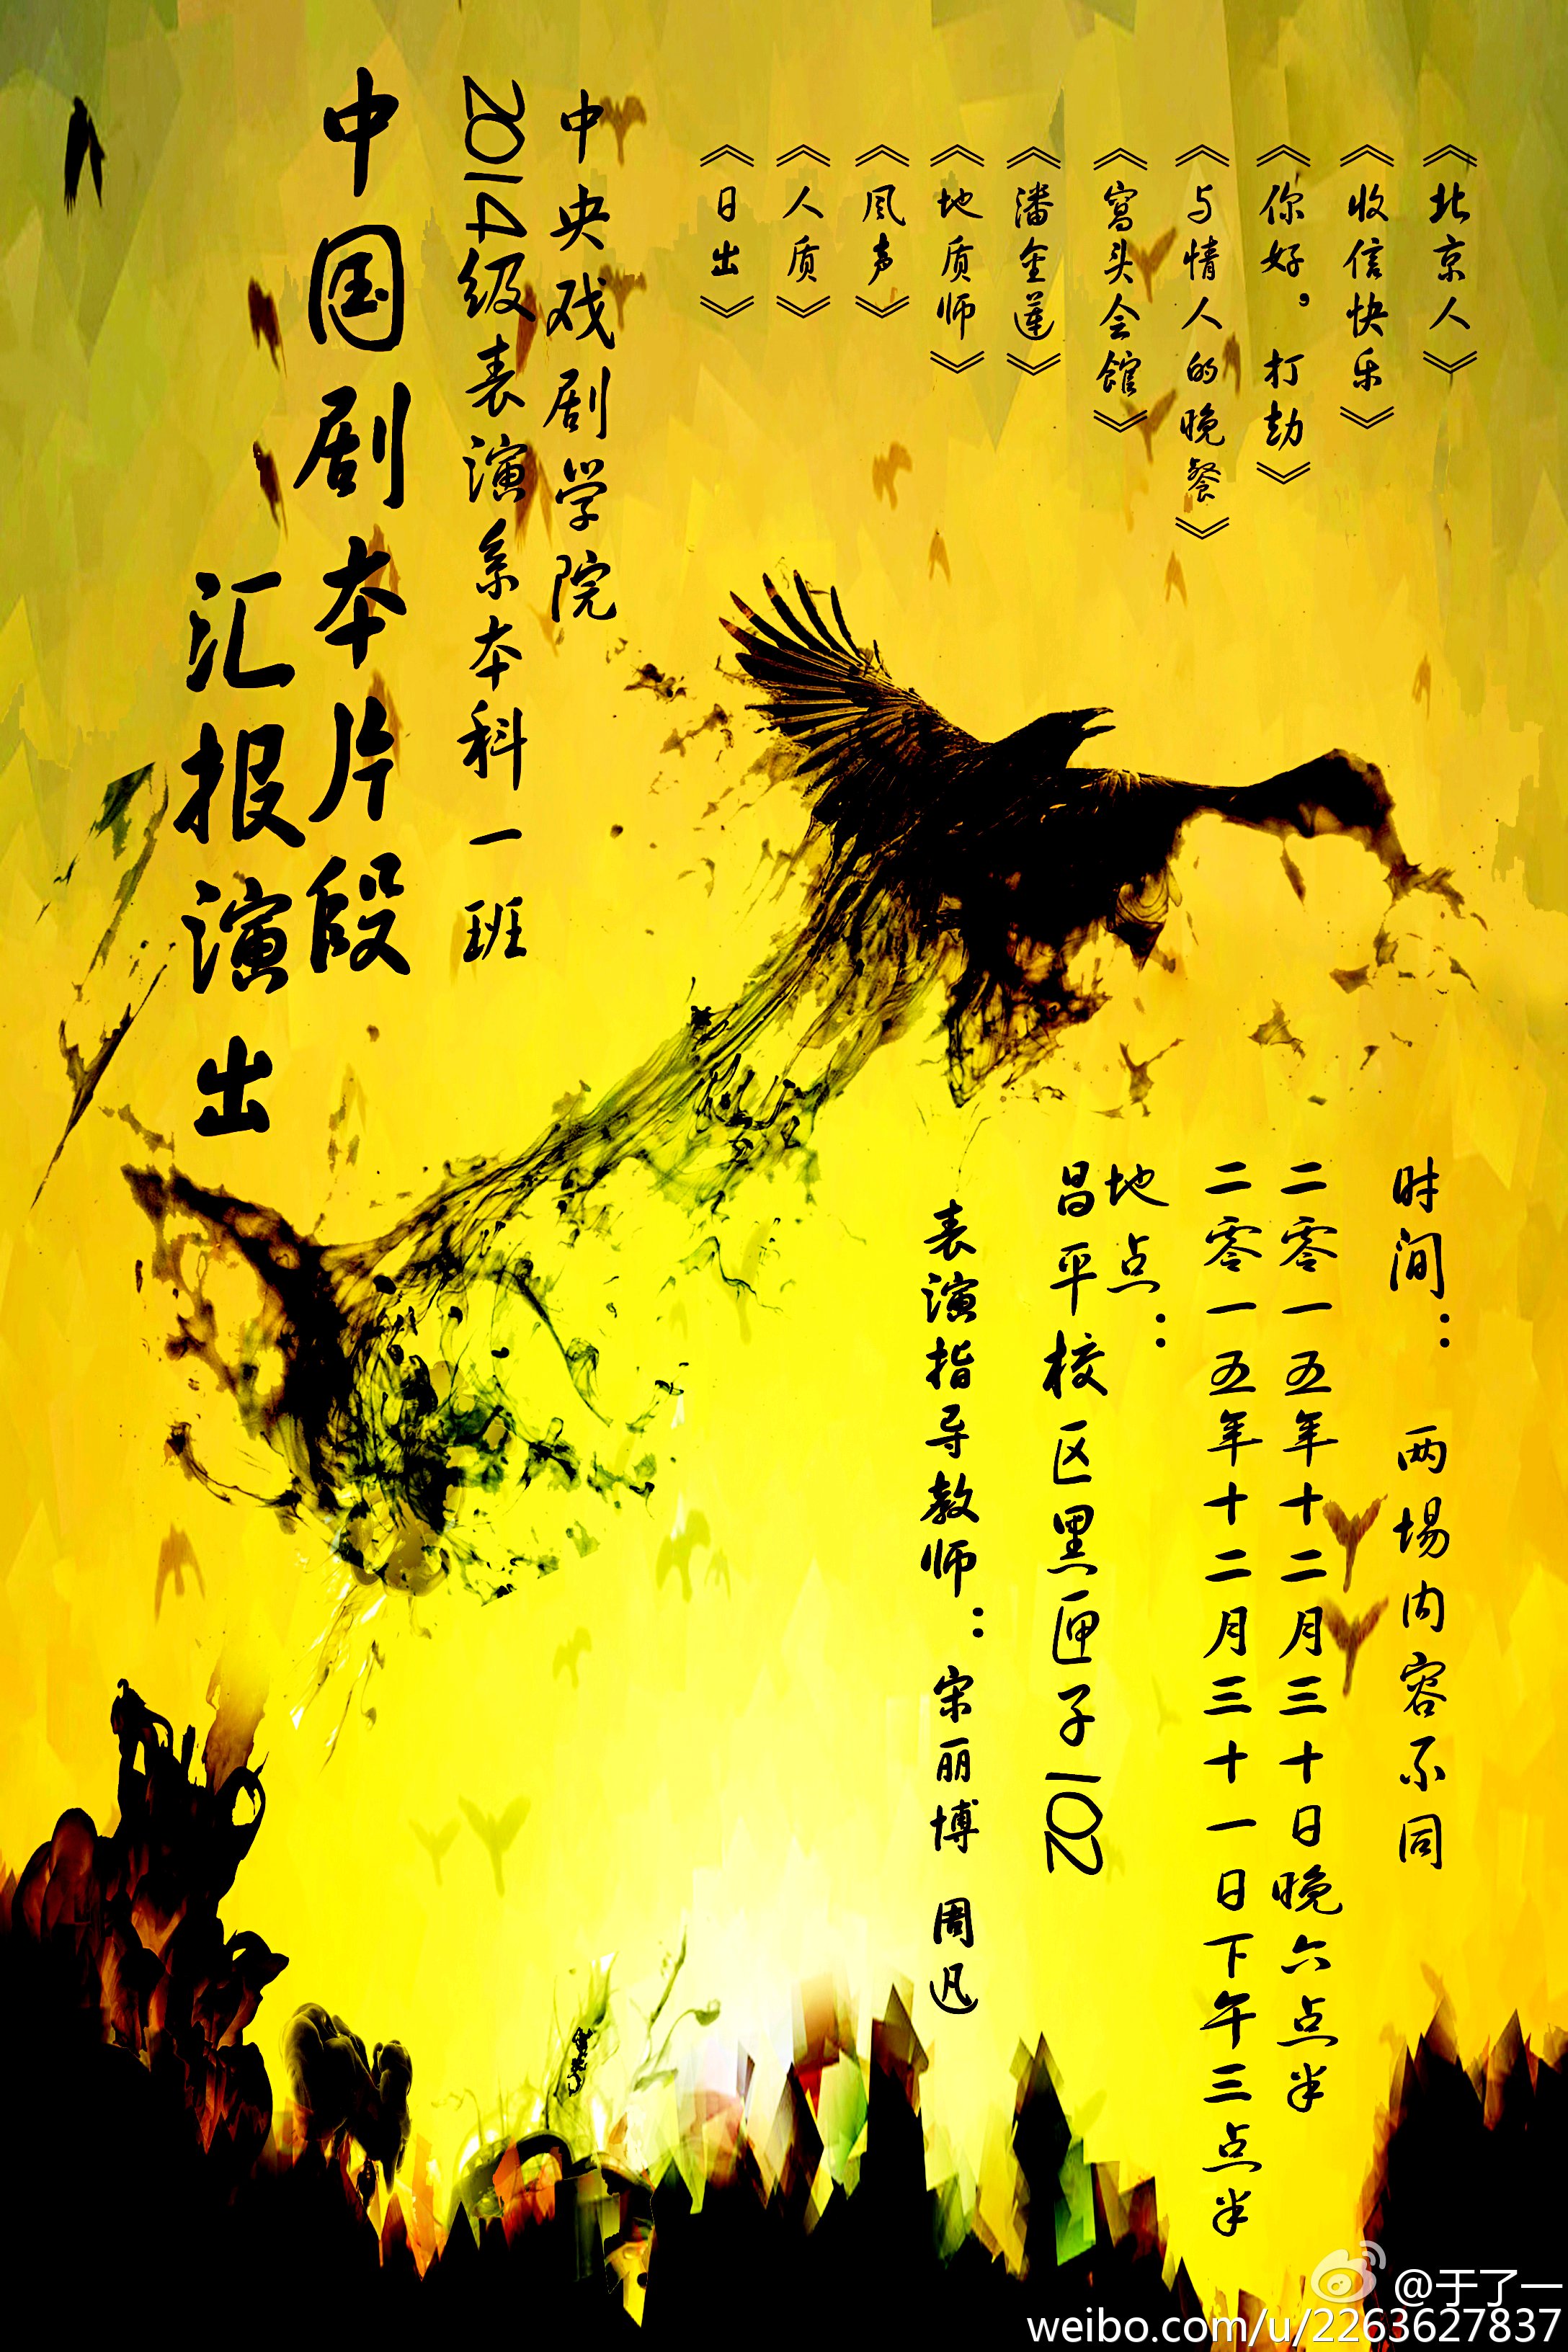 《北京人》
《收信快乐》
《你好，打劫》
《与情人的晚餐》
《窝头会馆》
《潘金莲》
《地质师》
《风声》
《人质》
《日出》
中央戏剧学院
2014级表演系本科一班
中国剧本片段
汇报演出
时间：两场内容不同
二零一五年十二月三十日晚六点半
二零一五年十二月三十一日下午三点半
地点：
昌平校区黑匣子102
表演指导教师：宋丽博 周迅
@于了一
weibo.com/u/2263627837